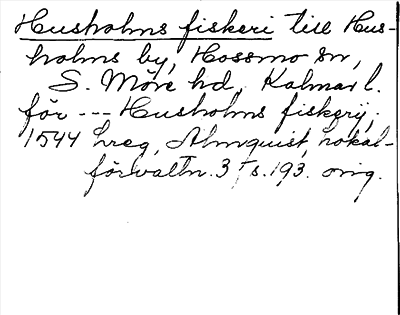 Husholms fiskeri till Hus-
holms by, Hossmo sn,
S. Möre hd, Kalmar l.
för --- Husholms fiskerij.
1544 hreg, Almquist, Lokal-
förvaltn. 3, s. 193. orig.